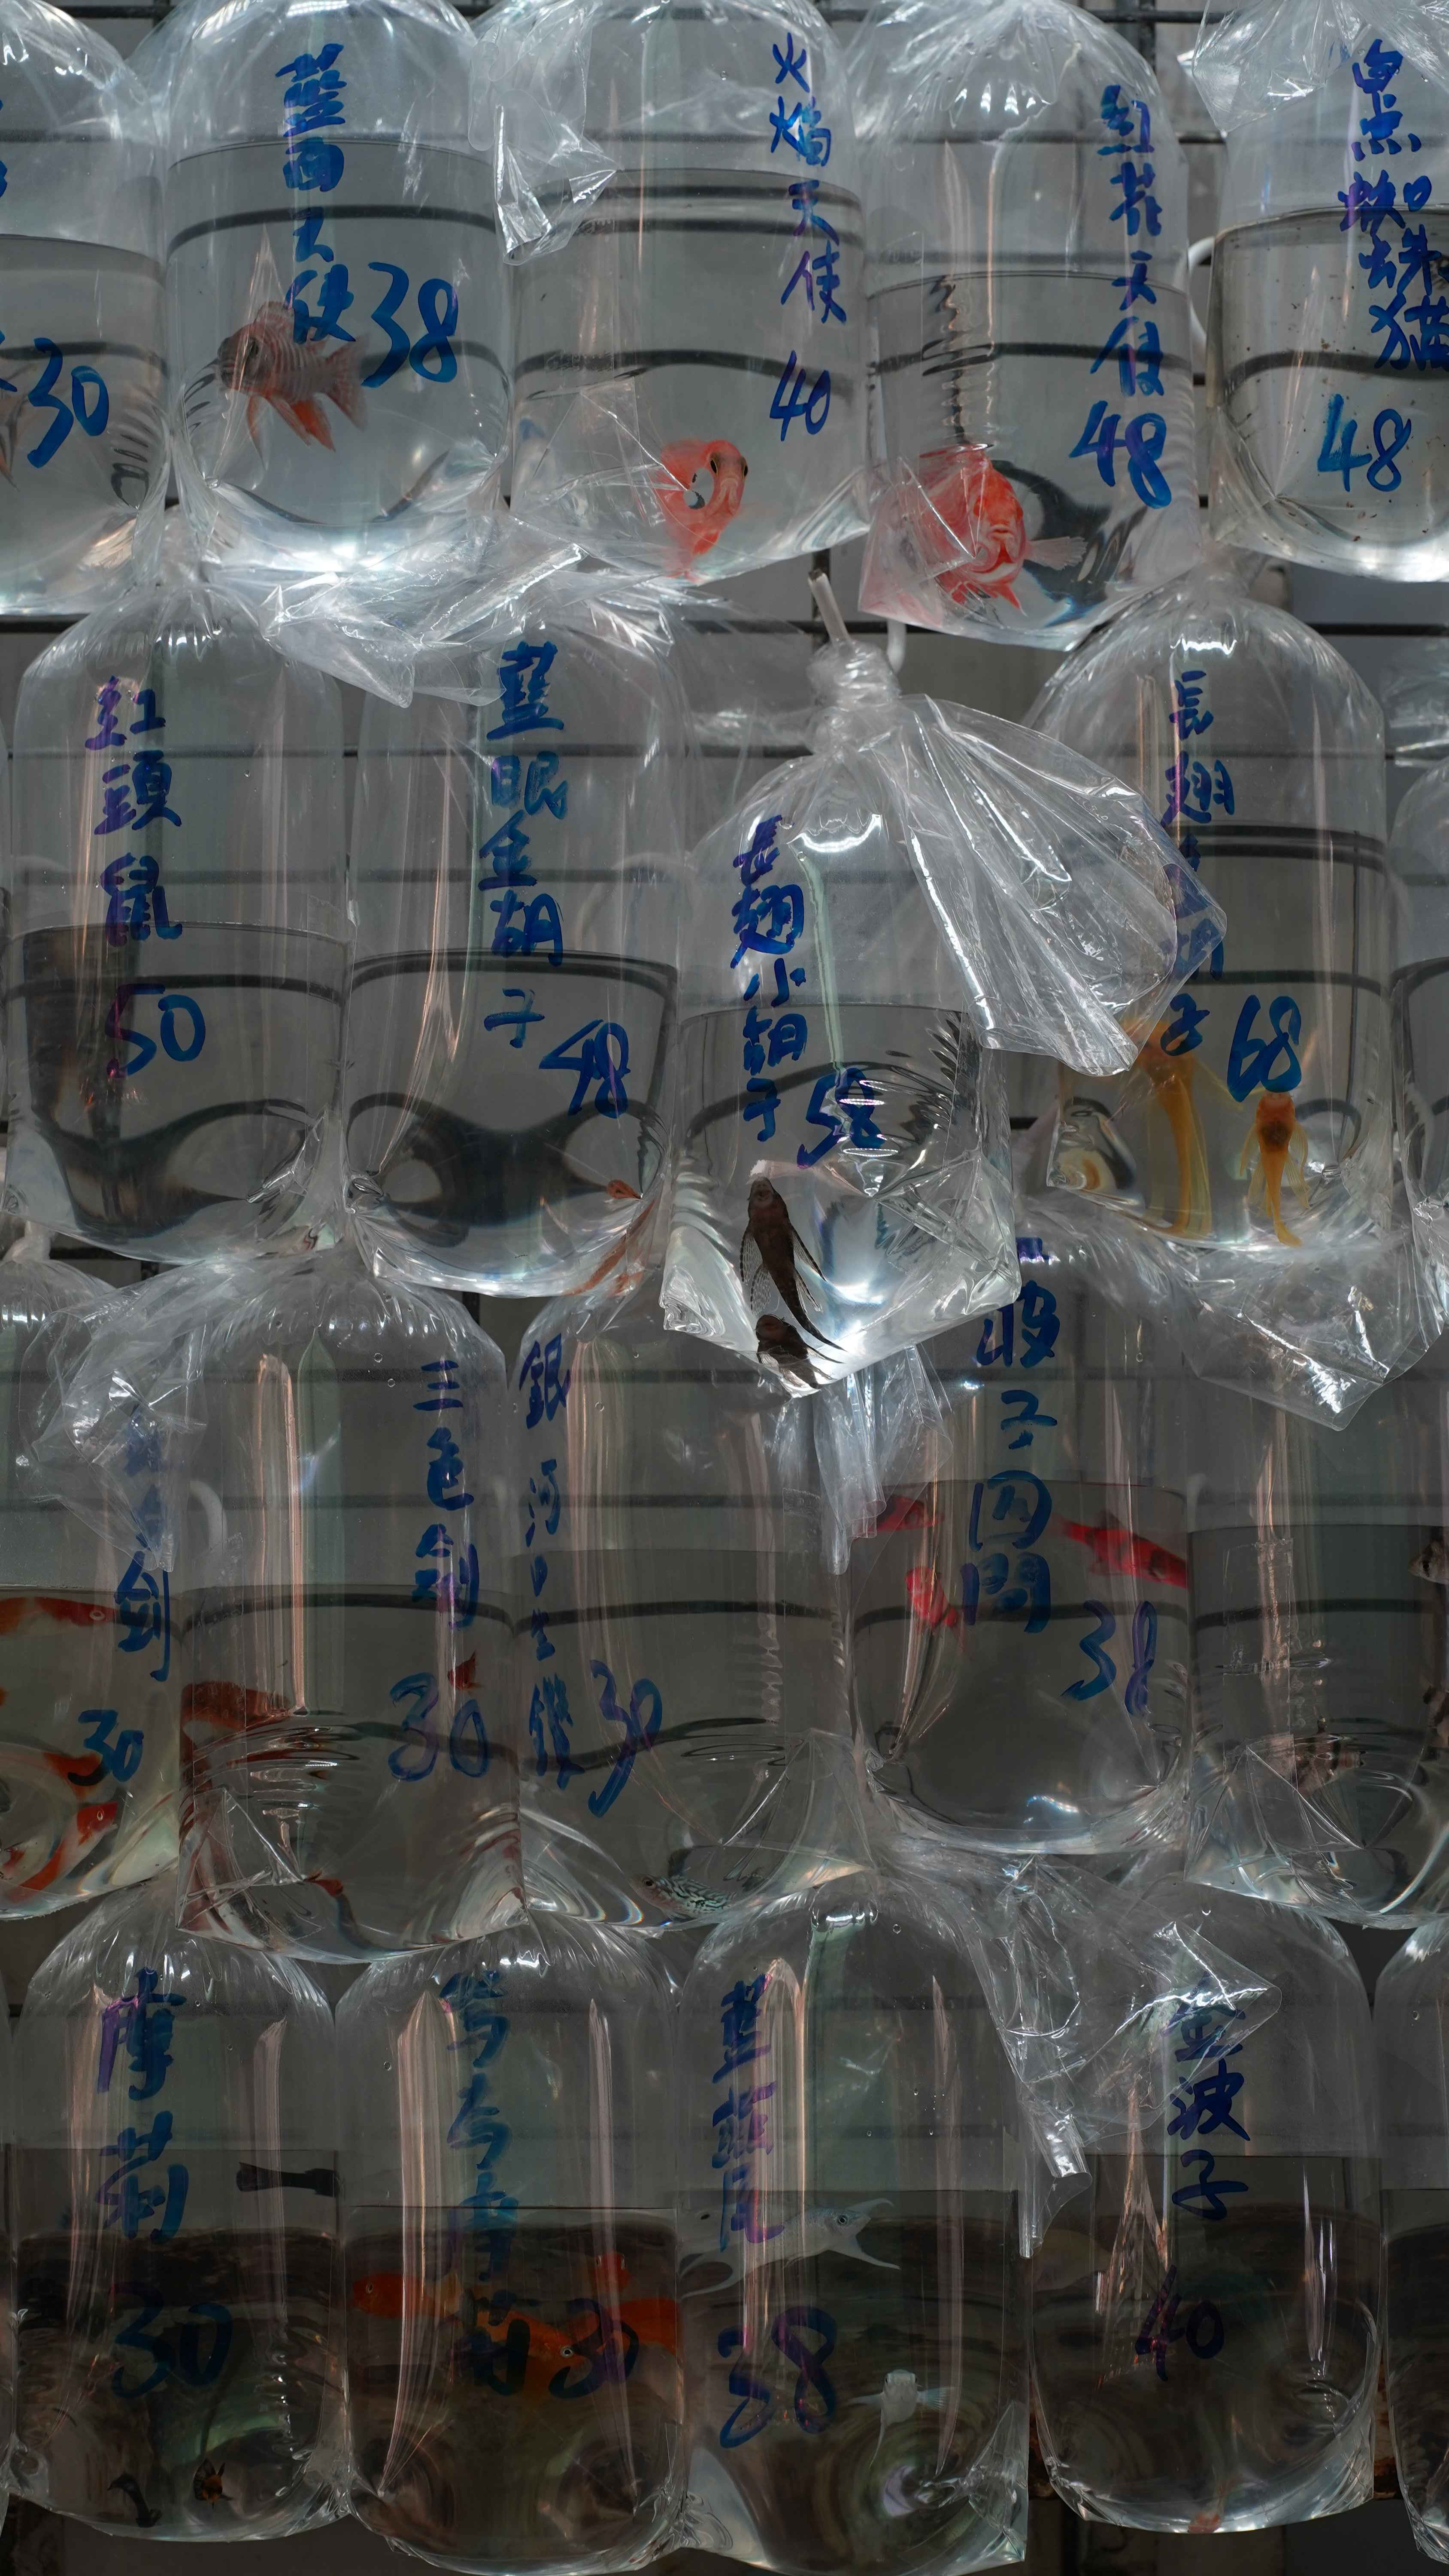 30
藍面天使
38
火焰天使
40
紅花天使
48
黑蜘蛛貓
48
紅頭鼠
50
藍眼金胡子
48
長翅小胡子
58
長翅
胡子
68
剑
30
三色剑
30
銀河
30
波子
38
摩莉
30
30
藍
尾
38
金波子
40